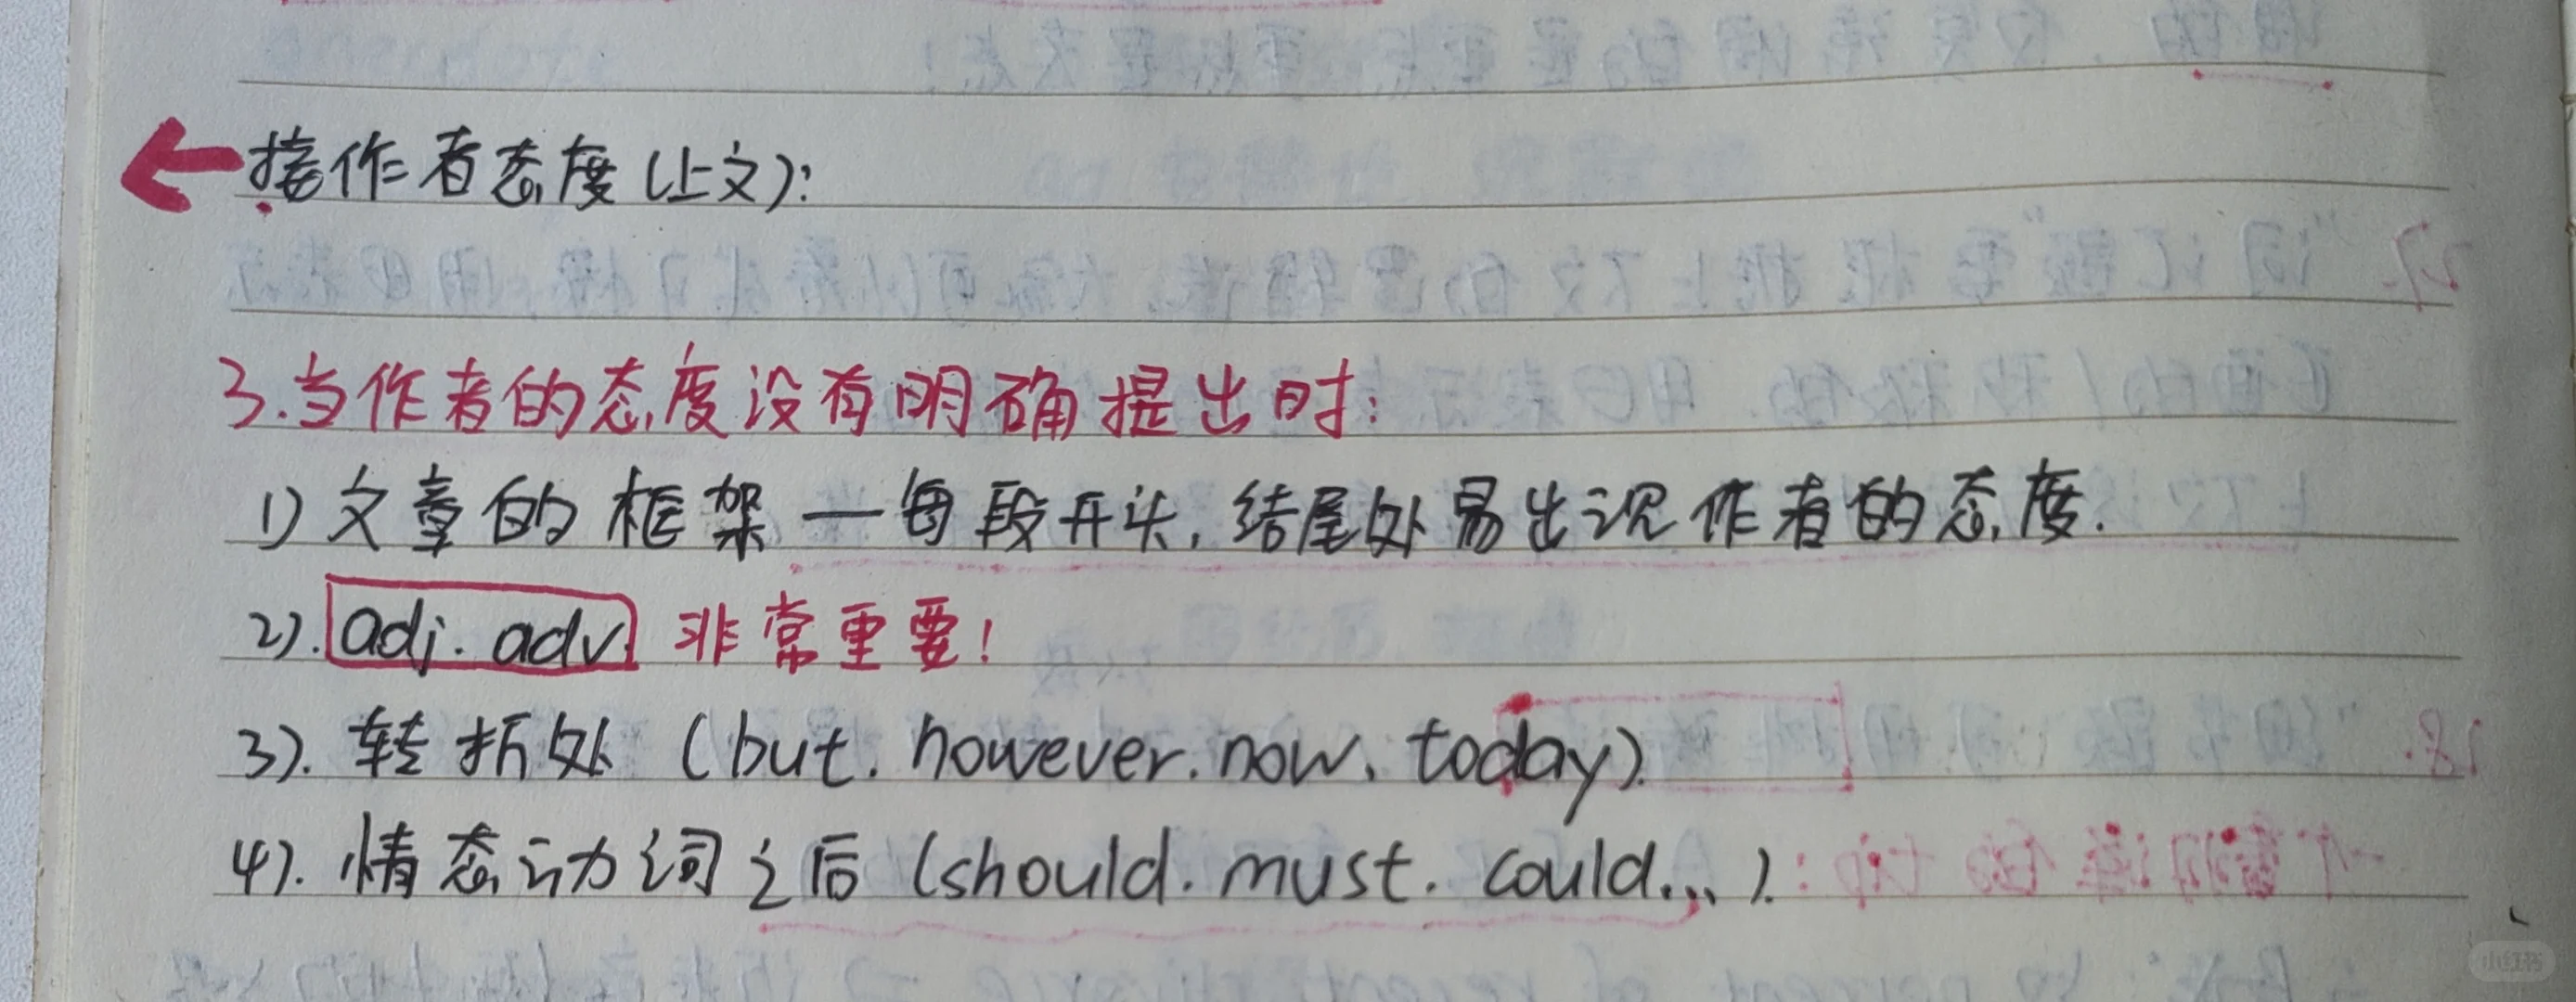 接作者态度(上文):
3.当作者的态度没有明确提出时:
1)文章的框架—每段开头,结尾处易出现作者的态度.
2).adj. adv.非常重要!
3).转折处(but.however.now.today).
4).情态动词之后(should.must.could...).
小红书